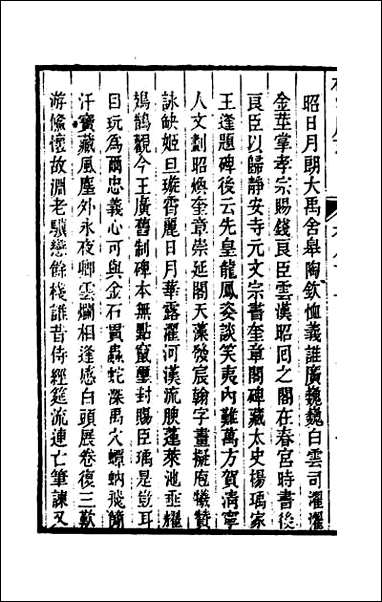 昭日月朗大禹舍皋陶欽恤義誰廣巍巍白雲司濯濯
金莖掌孝宗賜錢良臣雲漢昭回之閣在春宮時書後
良臣以歸靜安寺元文宗書奎章閣碑藏太史楊瑀家
王逢題碑後云先皇龍鳳姿談笑夷內難萬方賀清寧
人文劃昭煥奎章崇延閣天藻發宸翰字畫擬庖犧贊
詠缺姬旦璇霄麗日月華露濯河漢流腴蓬萊池亜耀
鳷鵲觀今王廣舊制碑本無點竄璽封賜臣瑀是豈耳
目玩為爾忠義心可與金石貫蟲蛇深禹穴蟫蚋飛簡
汗寶藏風塵外永夜卿雲爛相逢感白頭展卷復三歎
游儵懷故淵老驥戀餘棧誰昔侍經筵流連亡筆諫又